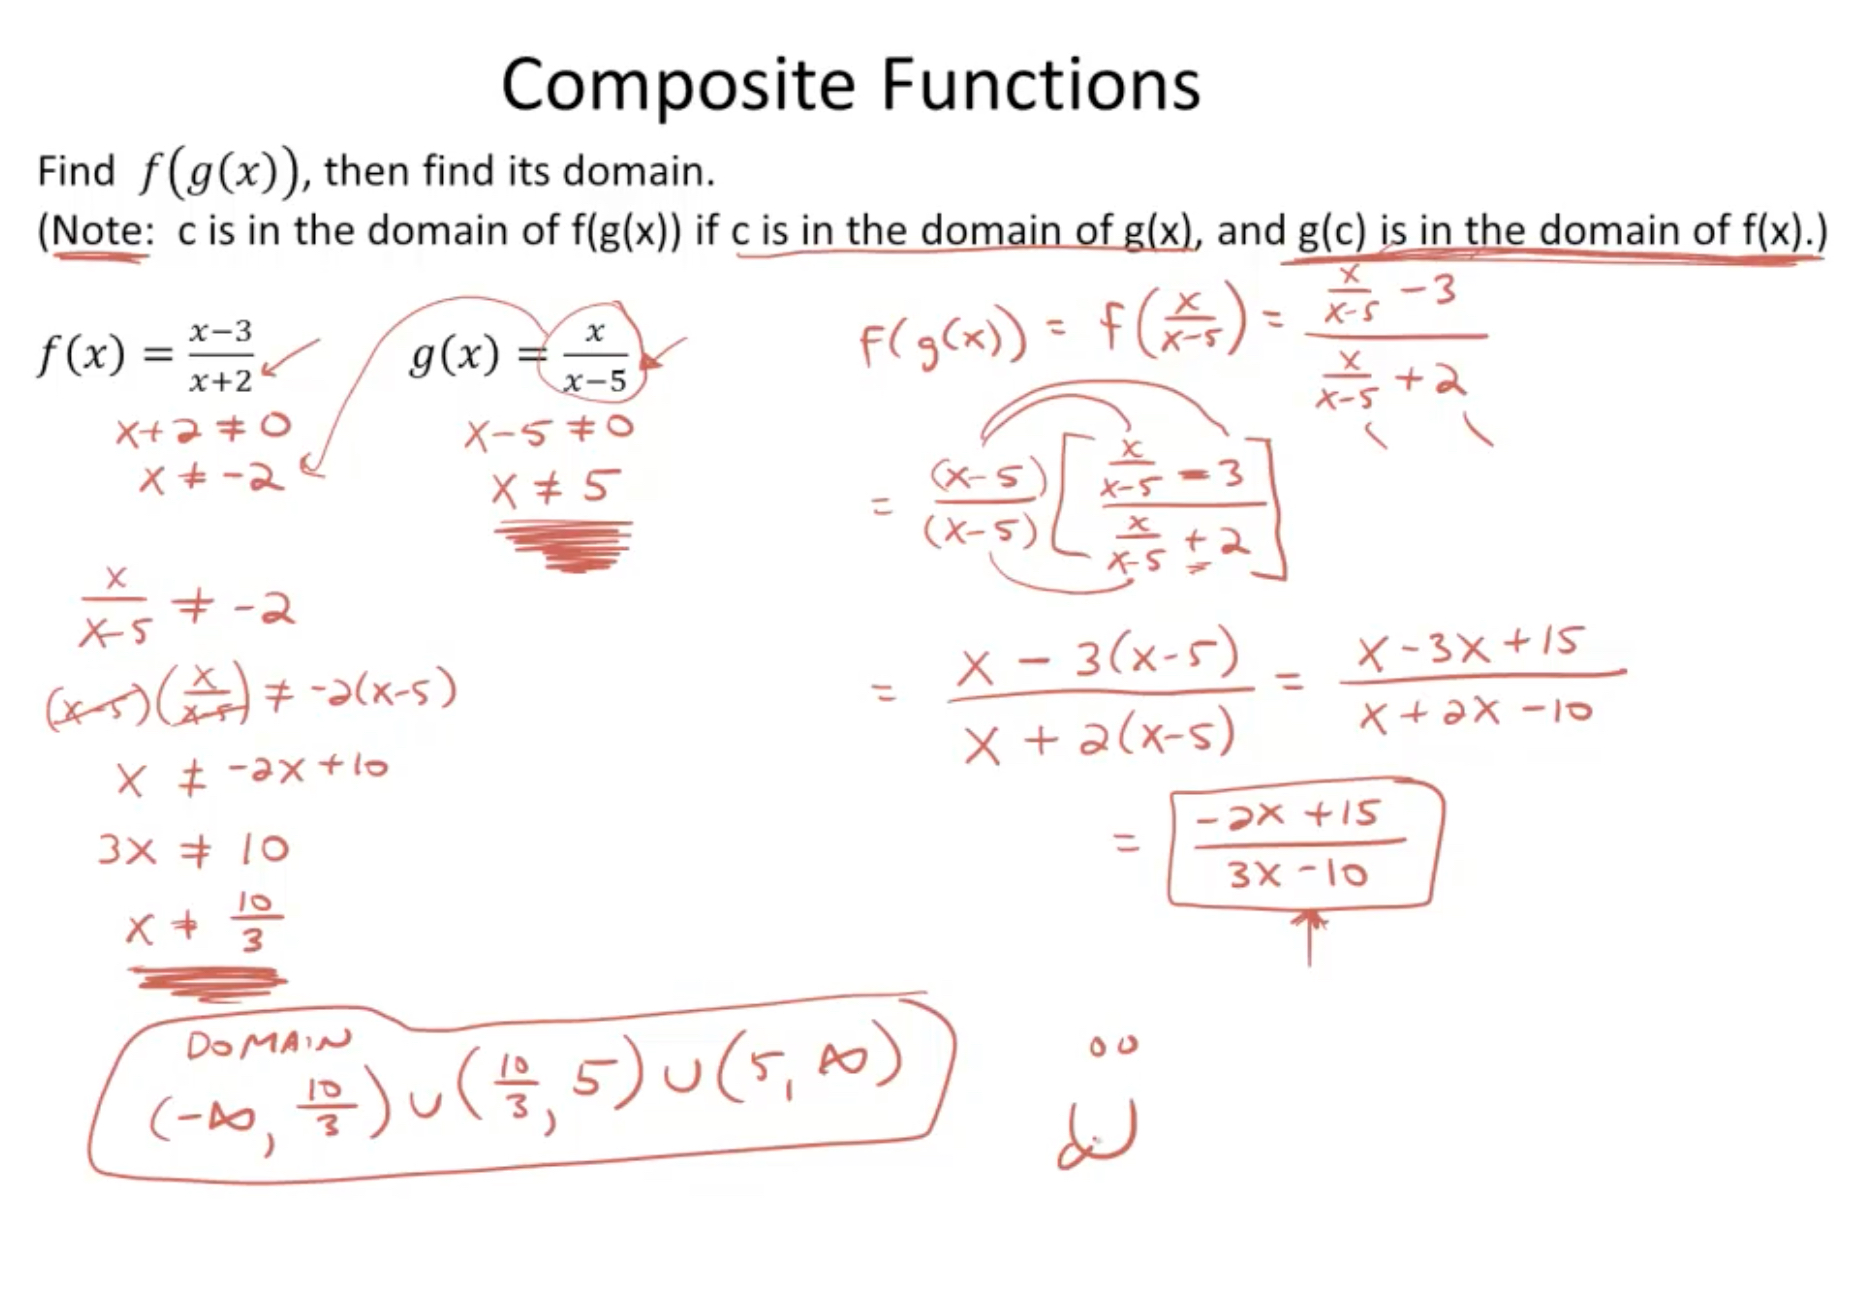 Composite Functions
Find f(g(x)), then find its domain.
(Note: c is in the domain of f(g(x)) if c is in the domain of g(x), and g(c) is in the domain of f(x).)
f(x) = (x−3)/(x+2)
g(x) = x/(x−5)
x+2 ≠ 0
x ≠ -2
x-5 ≠ 0
x ≠ 5
x/(x-5) ≠ -2
(x-5)(x/(x-5)) ≠ -2(x-5)
x ≠ -2x+10
3x ≠ 10
x ≠ 10/3
F(g(x)) = f(x/(x-5)) = (x/(x-5) - 3)/(x/(x-5) + 2)
= (x-5)/(x-5) [(x/(x-5) - 3)/(x/(x-5) + 2)]
= (x - 3(x-5))/(x + 2(x-5)) = (x-3x+15)/(x+2x-10)
= (-2x+15)/(3x-10)
DOMAIN
(-∞, 10/3) ∪ (10/3, 5) ∪ (5, ∞)